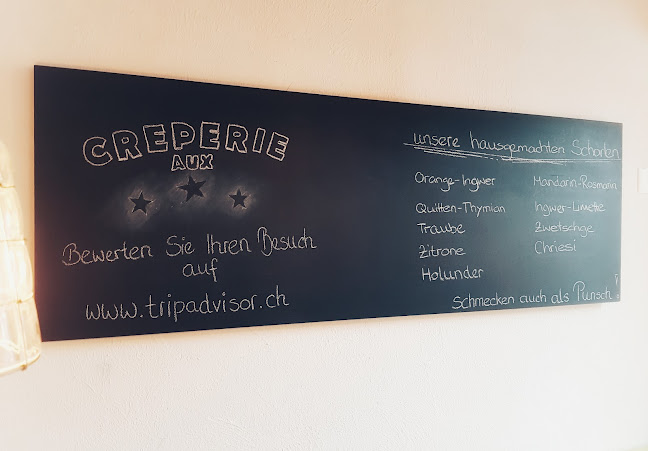 CREPERIE
AUX
Bewerten Sie Ihren Besuch
auf
www.tripadvisor.ch
unsere hausgemachten Schorlen
Orange-Ingwer
Quitten-Thymian
Traube
Zitrone
Holunder
Mandarin-Rosmarin
Ingwer-Limette
Zwetschge
Chriesi
Schmecken auch als Punsch!